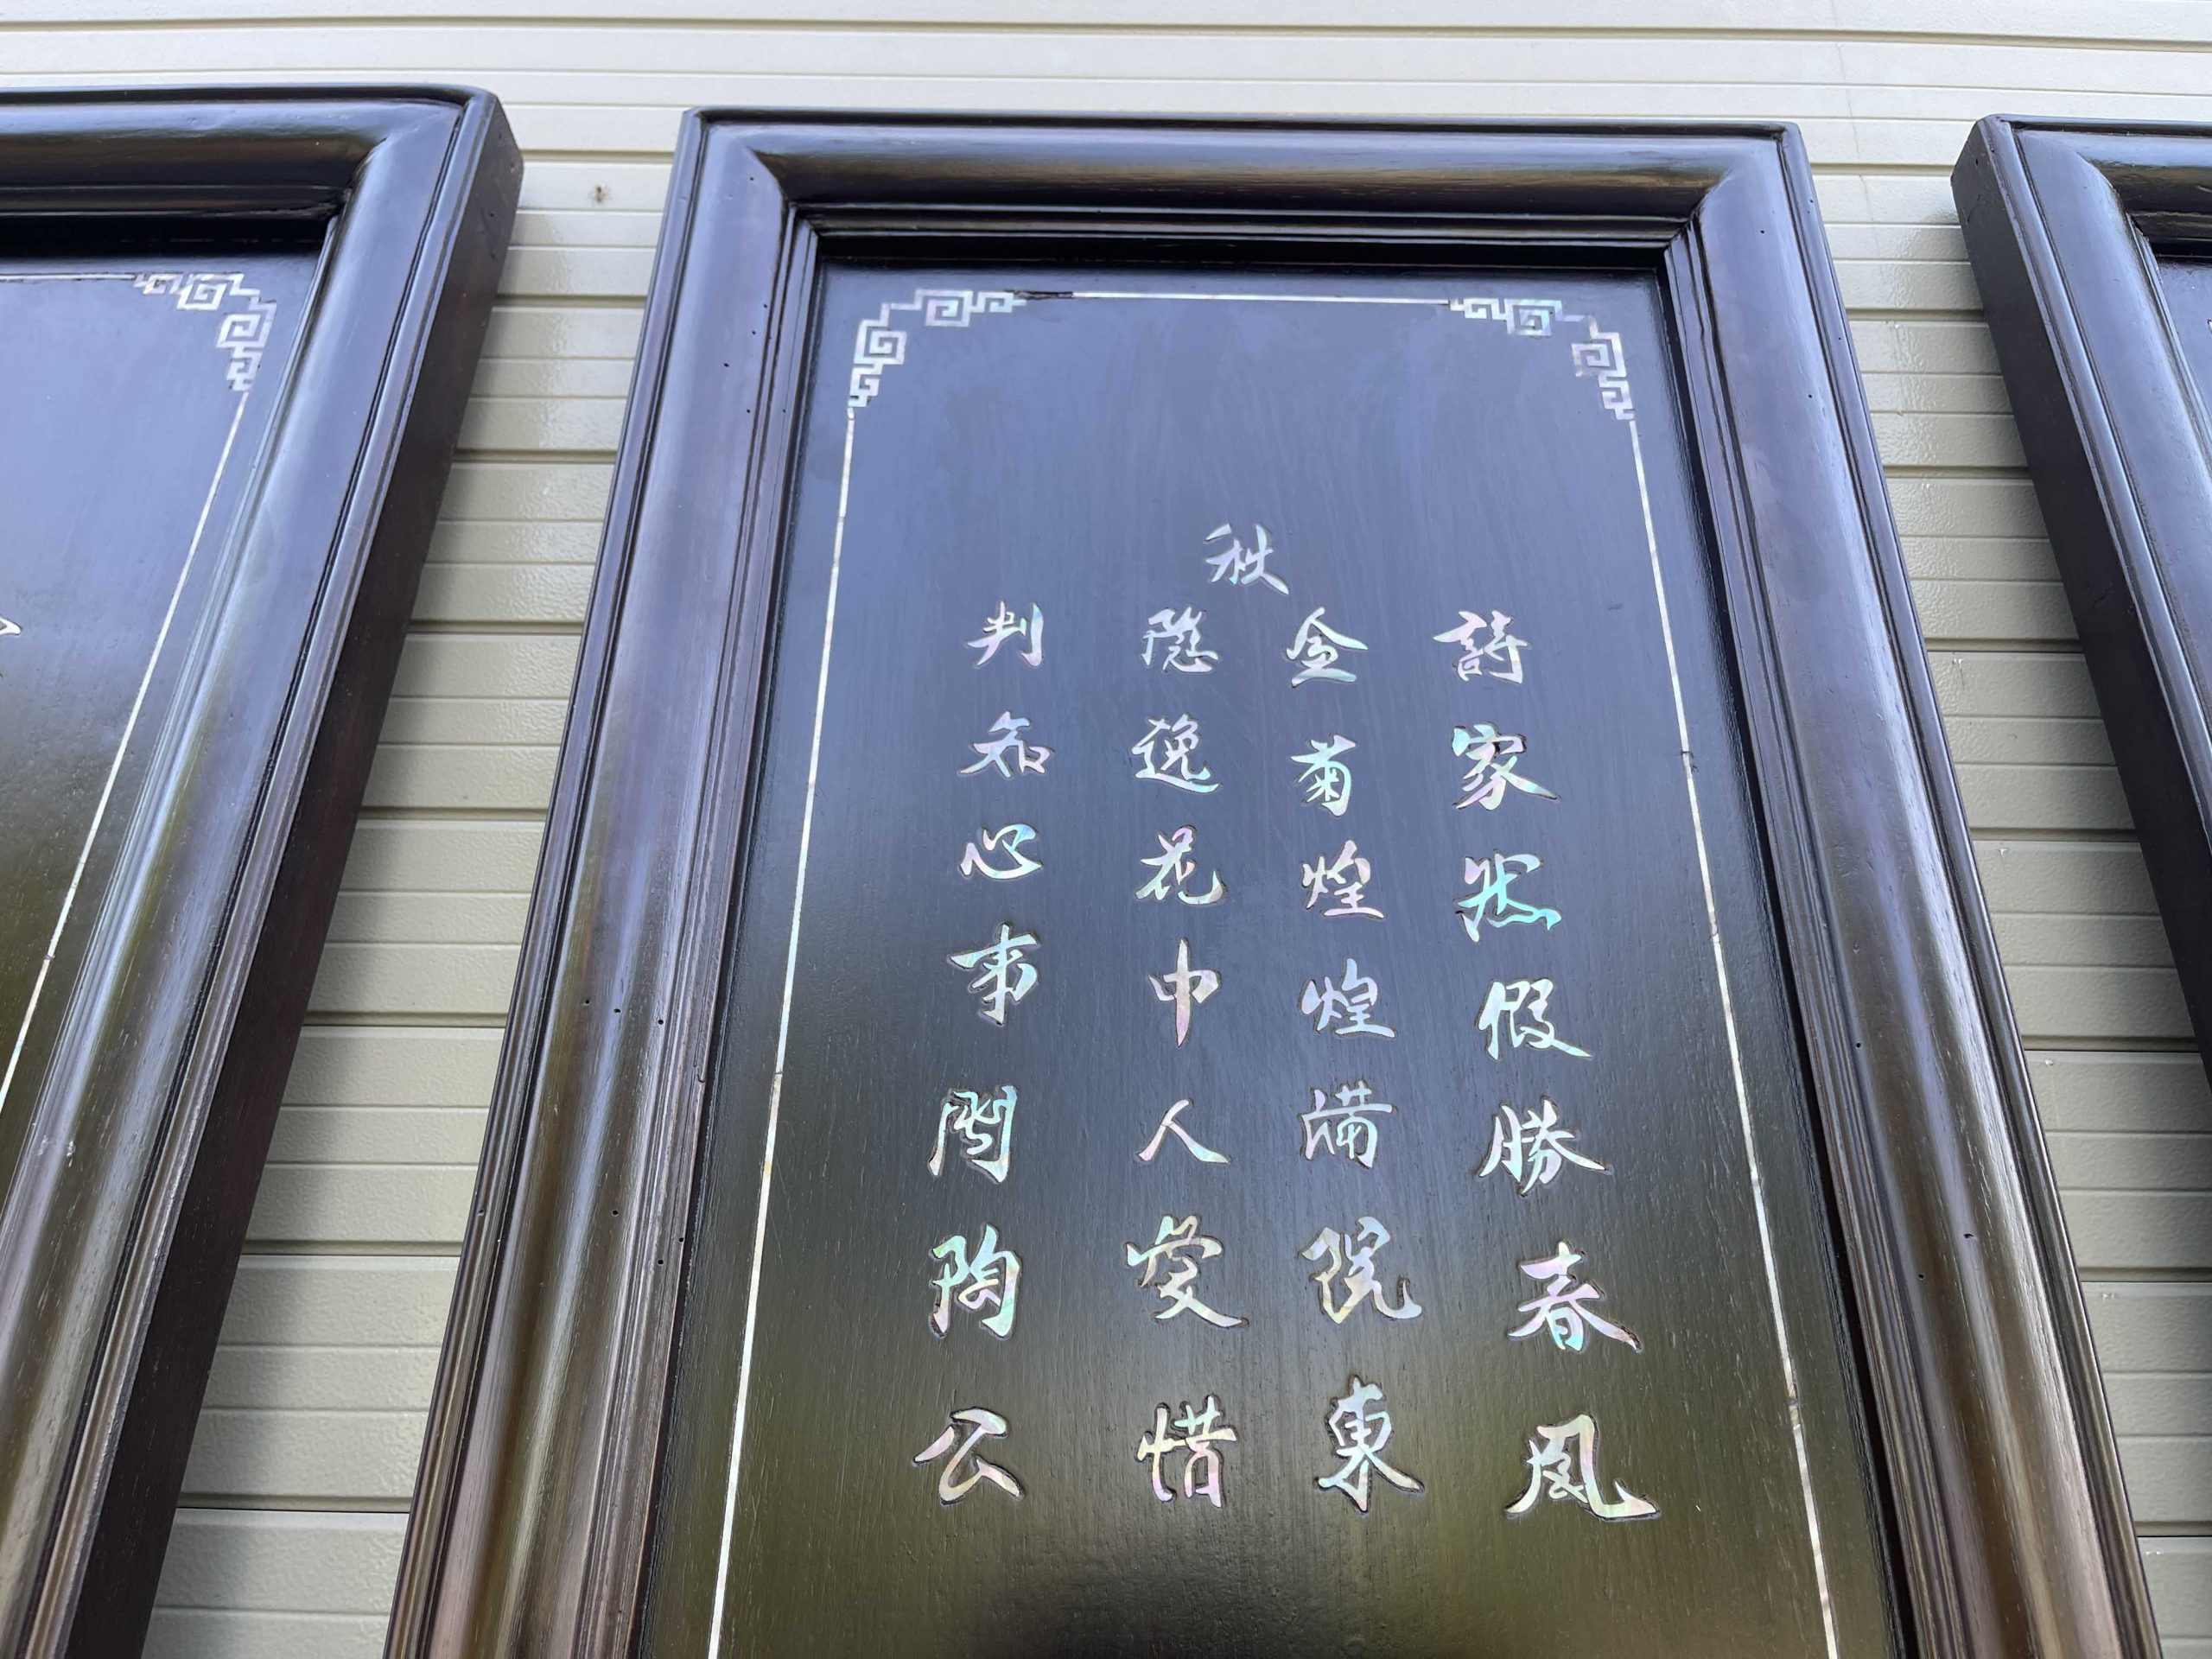 秋
詩家然假勝春風
金菊煌煌満院東
隠逸花中人愛惜
判知心事問陶公